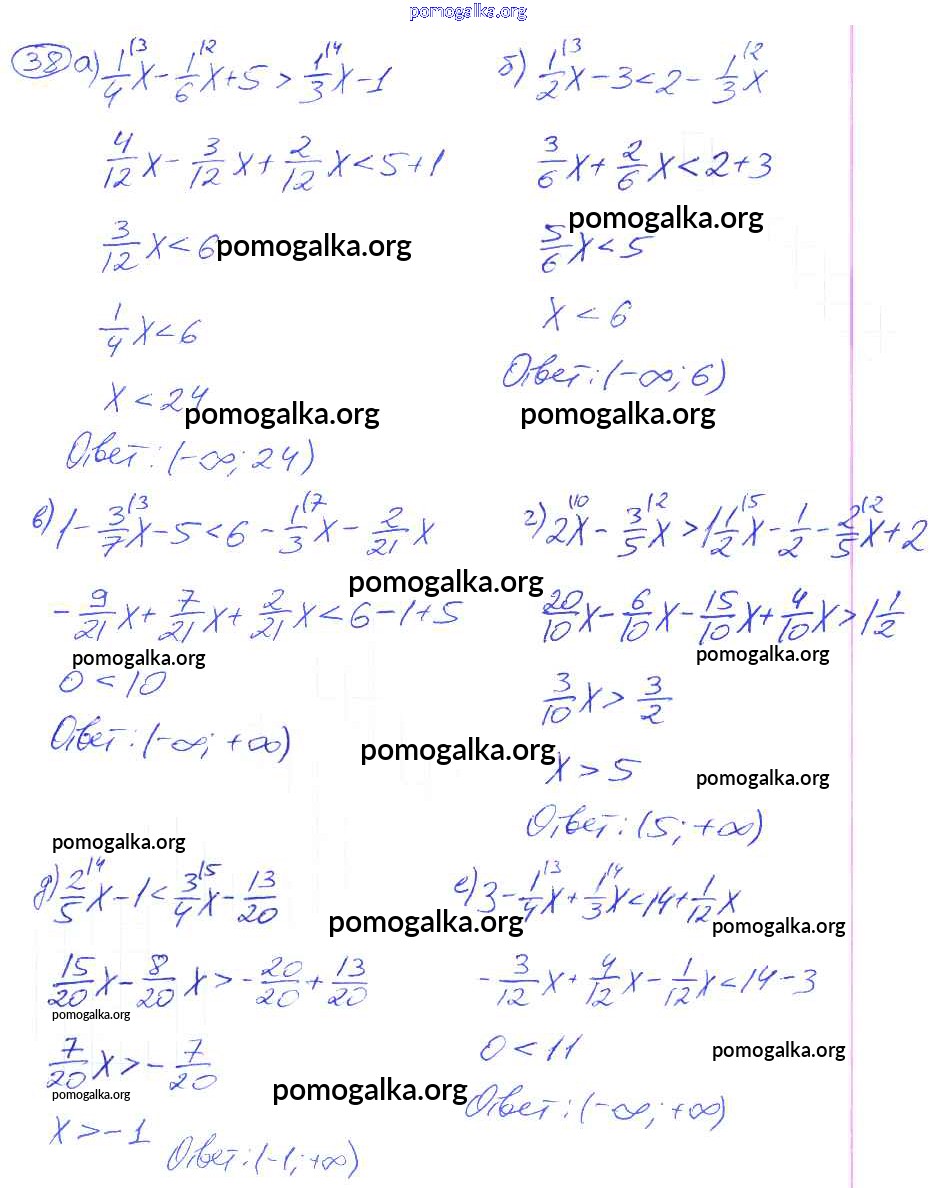 pomogalka.org
38 а) 1/4^{|3} x - 1/6^{|2} x + 5 > 1/3^{|4} x - 1
4/12 x - 3/12 x + 2/12 x < 5 + 1
3/12 x < 6 pomogalka.org
1/4 x < 6
x < 24
pomogalka.org
Ответ: (-∞; 24)
б) 1/2^{|3} x - 3 < 2 - 1/3^{|2} x
3/6 x + 2/6 x < 2 + 3
pomogalka.org
5/6 x < 5
x < 6
Ответ: (-∞; 6)
pomogalka.org
в) 1 - 3/7^{|3} x - 5 < 6 - 1/3^{|7} x - 2/21 x
pomogalka.org
-9/21 x + 7/21 x + 2/21 x < 6 - 1 + 5
pomogalka.org
0 < 10
Ответ: (-∞; +∞)
pomogalka.org
г) 2x^{|10} - 3/5^{|2} x > 1 1/2^{|5} x - 1/2 - 2/5^{|2} x + 2
20/10 x - 6/10 x - 15/10 x + 4/10 x > 1 1/2
pomogalka.org
3/10 x > 3/2
x > 5
pomogalka.org
Ответ: (5; +∞)
pomogalka.org
д) 2/5^{|4} x - 1 < 3/4^{|5} x - 13/20
pomogalka.org
15/20 x - 8/20 x > -20/20 + 13/20
pomogalka.org
7/20 x > -7/20
pomogalka.org
pomogalka.org
x > -1
Ответ: (-1; +∞)
е) 3 - 1/4^{|3} x + 1/3^{|4} x < 14 + 1/12 x
pomogalka.org
-3/12 x + 4/12 x - 1/12 x < 14 - 3
0 < 11
pomogalka.org
Ответ: (-∞; +∞)